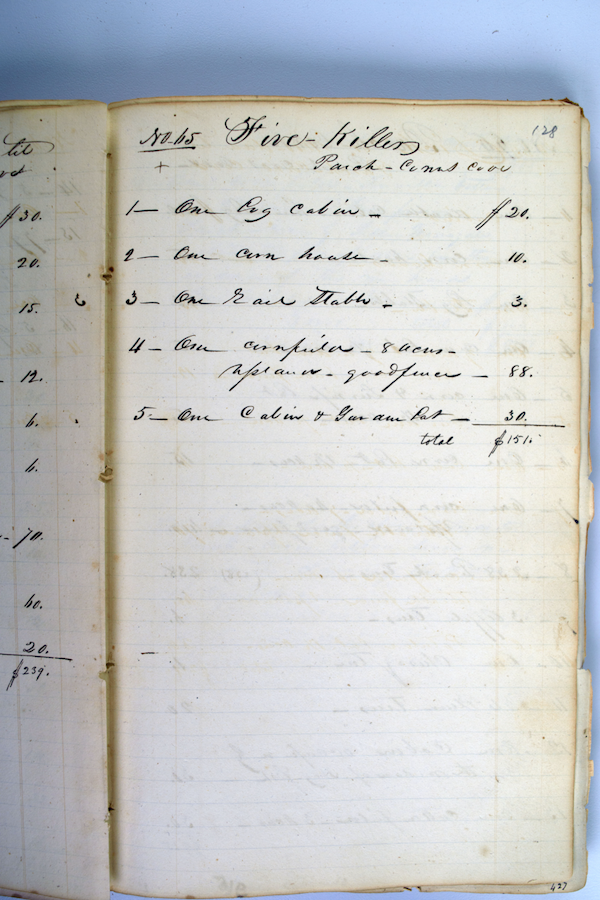 30.
20.
15.
12.
6.
6.
70.
60.
20.
$239.
No. 65 Five Killer
128
+
1 — One Log Cabin — $20.
2 — One Corn house — 10.
3 — One Rail Stable — 3.
4 — One cornfield — 8 acres —
upland — good fence — 88.
5 — One Cabin & Garden Pat — 30.
total $151.
427